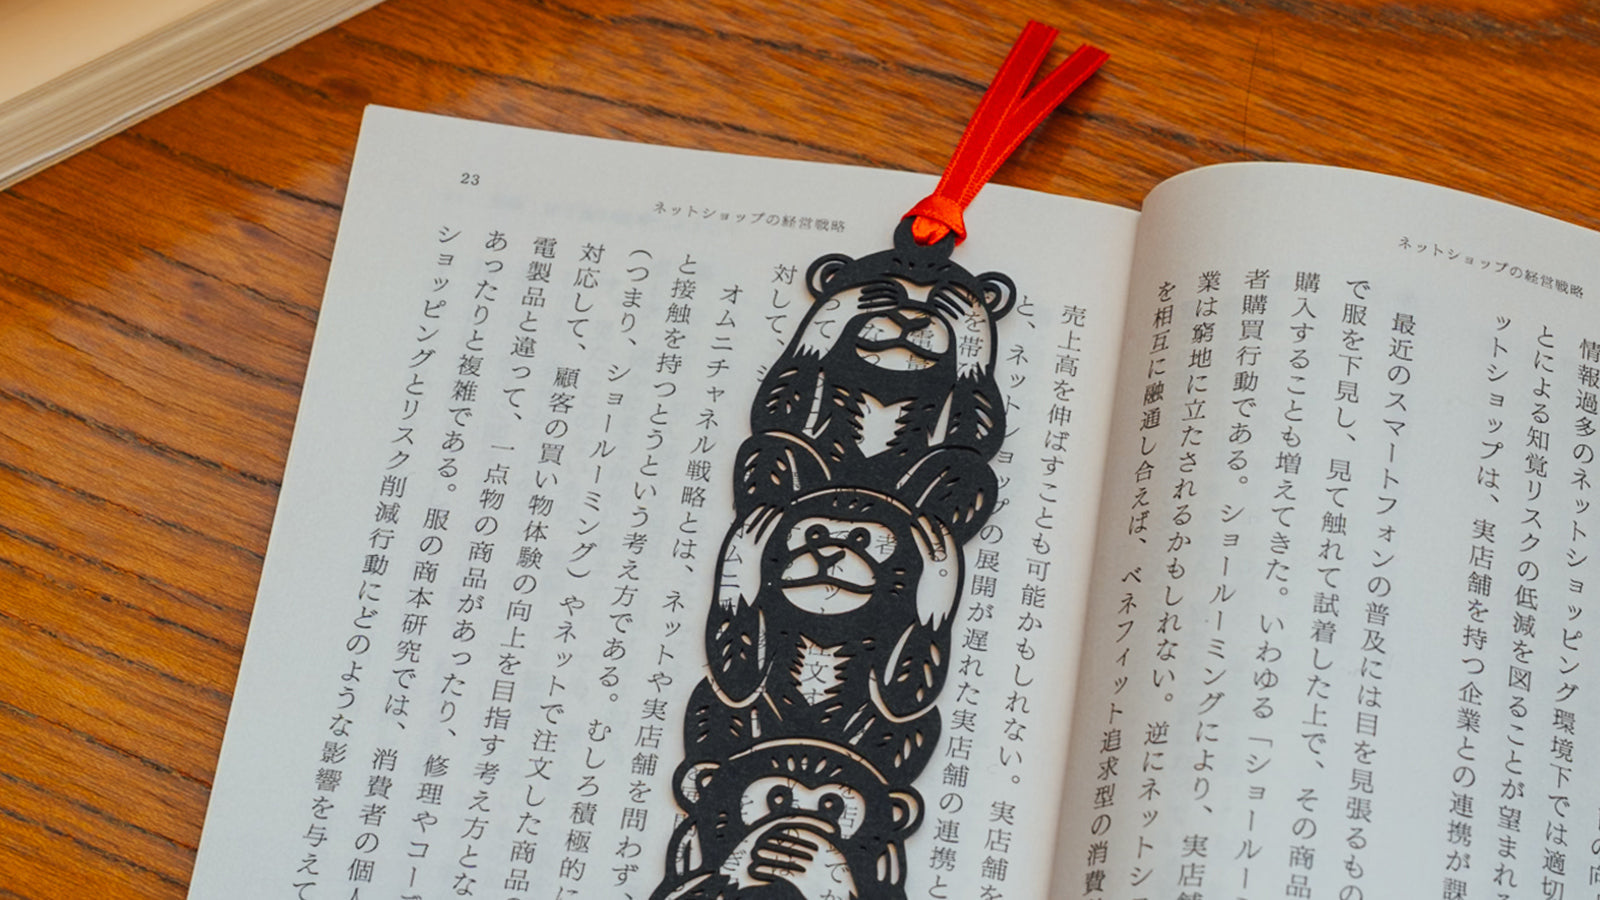 ネットショップの経営戦略
情報過多のネットショッピング環境下では適切
とによる知覚リスクの低減を図ることが望まれ
ットショップは、実店舗を持つ企業との連携が課
最近のスマートフォンの普及には目を見張るもの
で服を下見し、見て触れて試着した上で、その商品
購入することも増えてきた。いわゆる「ショールー
者購買行動である。ショールーミングにより、実店
業は窮地に立たされるかもしれない。逆にネットシ
を相互に融通し合えば、ベネフィット追求型の消費
23
ネットショップの経営戦略
売上高を伸ばすことも可能かもしれない。実店舗を
と、ネットショップの展開が遅れた実店舗の連携と
を帯
対して、
オムニチャネル戦略とは、ネットや実店舗を問わず、
と接触を持つとうという考え方である。むしろ積極的に
(つまり、ショールーミング)やネットで注文した商品の
対応して、顧客の買い物体験の向上を目指す考え方とな
電製品と違って、一点物の商品があったり、修理やコー
あったりと複雑である。服の商本研究では、消費者の個人
ショッピングとリスク削減行動にどのような影響を与えて